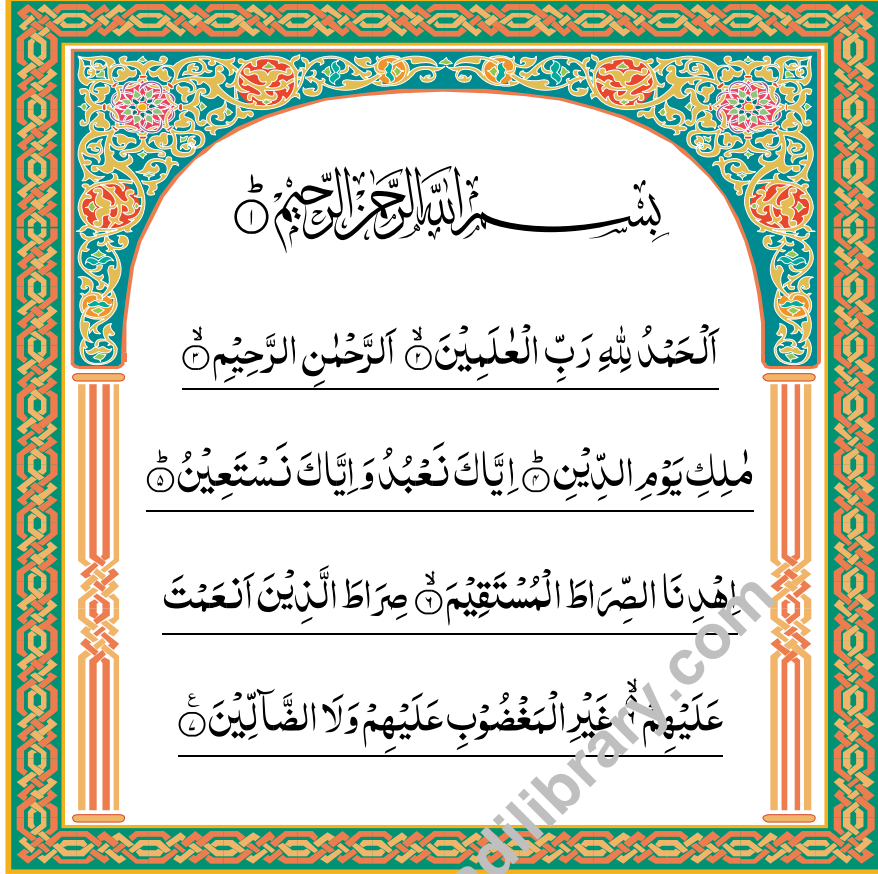 بِسْمِ اللهِ الرَّحْمٰنِ الرَّحِيْمِ ۙ ؕ ﴿۱﴾
اَلْحَمْدُ لِلّٰهِ رَبِّ الْعٰلَمِيْنَ ۙ﴿۲﴾ اَلرَّحْمٰنِ الرَّحِيْمِ ۙ﴿۳﴾
مٰلِكِ يَوْمِ الدِّيْنِ ؕ﴿۴﴾ اِيَّاكَ نَعْبُدُ وَ اِيَّاكَ نَسْتَعِيْنُ ؕ﴿۵﴾
اِهْدِنَا الصِّرَاطَ الْمُسْتَقِيْمَ ۙ﴿۶﴾ صِرَاطَ الَّذِيْنَ اَنعَمْتَ
عَلَيْهِمْ ۙ۬ۦ غَيْرِ الْمَغْضُوْبِ عَلَيْهِمْ وَلَا الضَّآلِّيْنَ ﴿۷﴾ ع
dilibrary.com